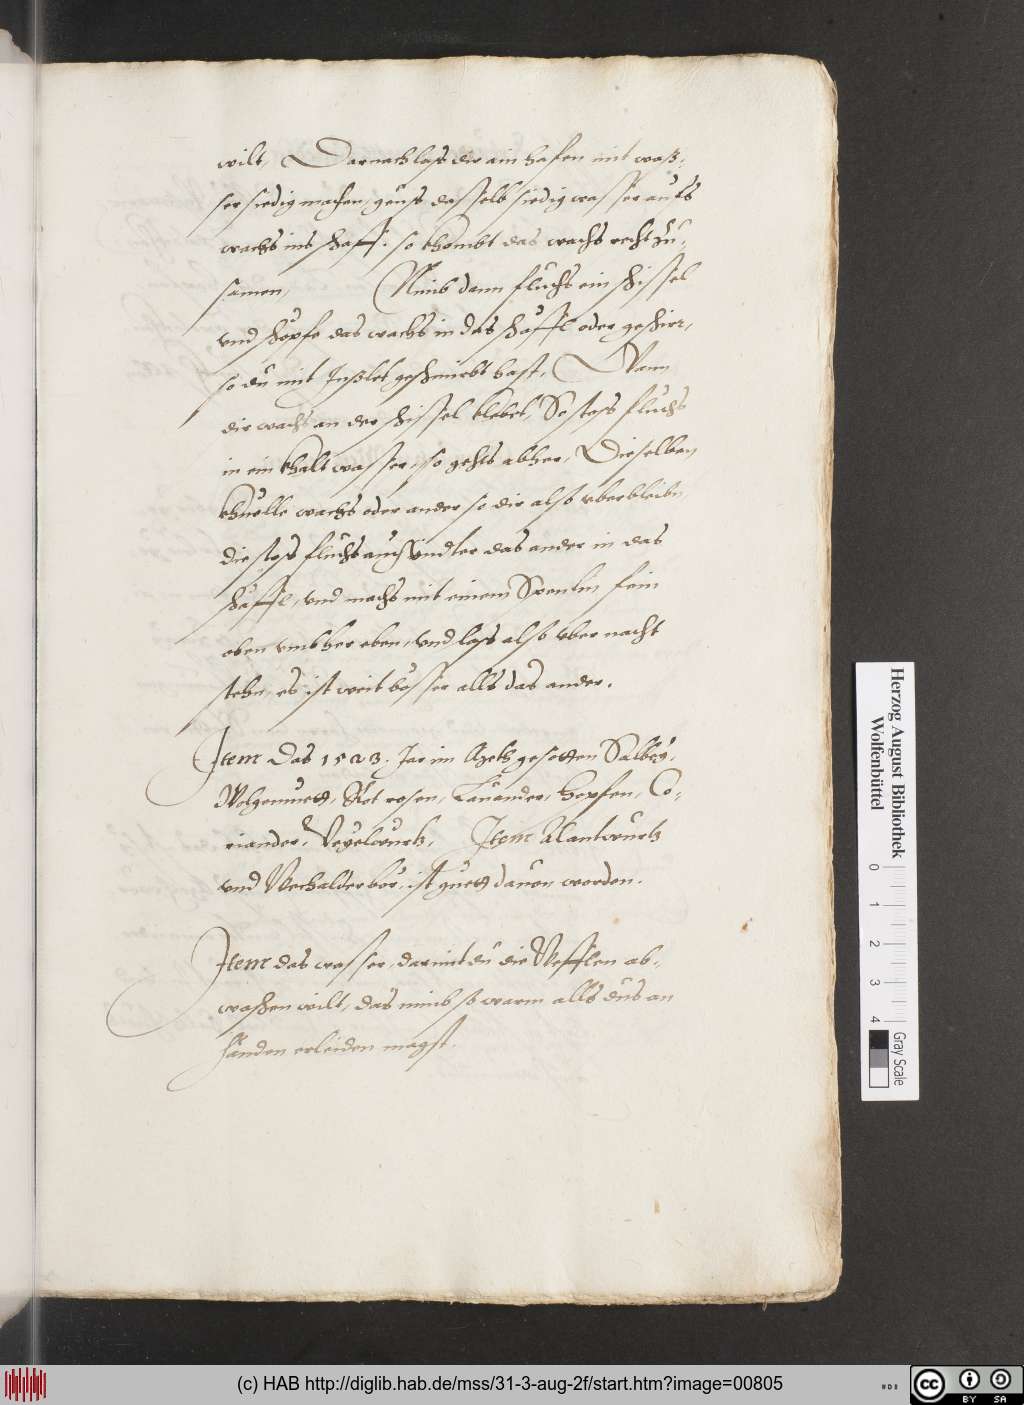 wilt, Darnach lass dir ain hafen mit waß,
ser siedig machen, geuss dasselb siedig wasser aufs
wachs ins schaff. so khombt das wachs recht zu,
samen, Nimb dann fluchs ein schissel
vnd schöpfe das wachs in das schäffl oder geschirr,
so du mit Inßlet geschmirbt hast, Wann
dir wachs an der schissel klebet, So stoss fluchs
in ein khalt wasser, so gehts abher, Dieselben
khnolle wachs oder ander so dir also vberbleibn
die stoss fluchs auch vndter das ander in das
schäffl, vnd machs mit einem Spenlin fein
oben vmbher eben, vnd lass also vber nacht
stehn, es ist weit besser alls das ander.
Item Das 1523. Jar im gesotten Salbey,
Wolgemuett, Rot rosen, Lauander, hopfen, Co,
riander, Veyelwurtz, Item Alantwurtz
vnd Wechalterbör, ist guett dauon worden.
Item das wasser, darmit du die abwaschen
waschen wilt, das nimb so warm alls dus an
händen erleiden magst.
Herzog August Bibliothek
Wolfenbüttel
0 1 2 3 4
Gray Scale
(c) HAB http://diglib.hab.de/mss/31-3-aug-2f/start.htm?image=00805
cc BY SA